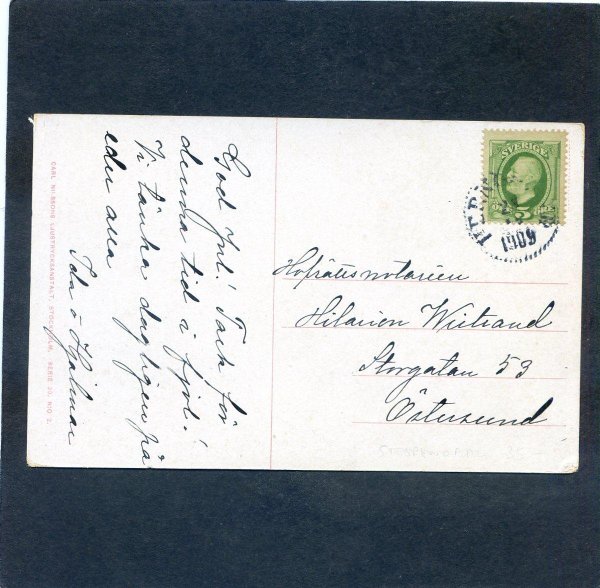 God Jul! Tack för
denna tid i fjol!
Vi tänka dagligen på
eder alla
Ida o Hjalmar
CARL NILSSONS LJUSTRYCKSANSTALT, STOCKHOLM. SERIE 20, N:O 2.
SVERIGE
5
1909
Hofrättsnotarien
Hilarion Wistrand
Storgatan 53
Östersund